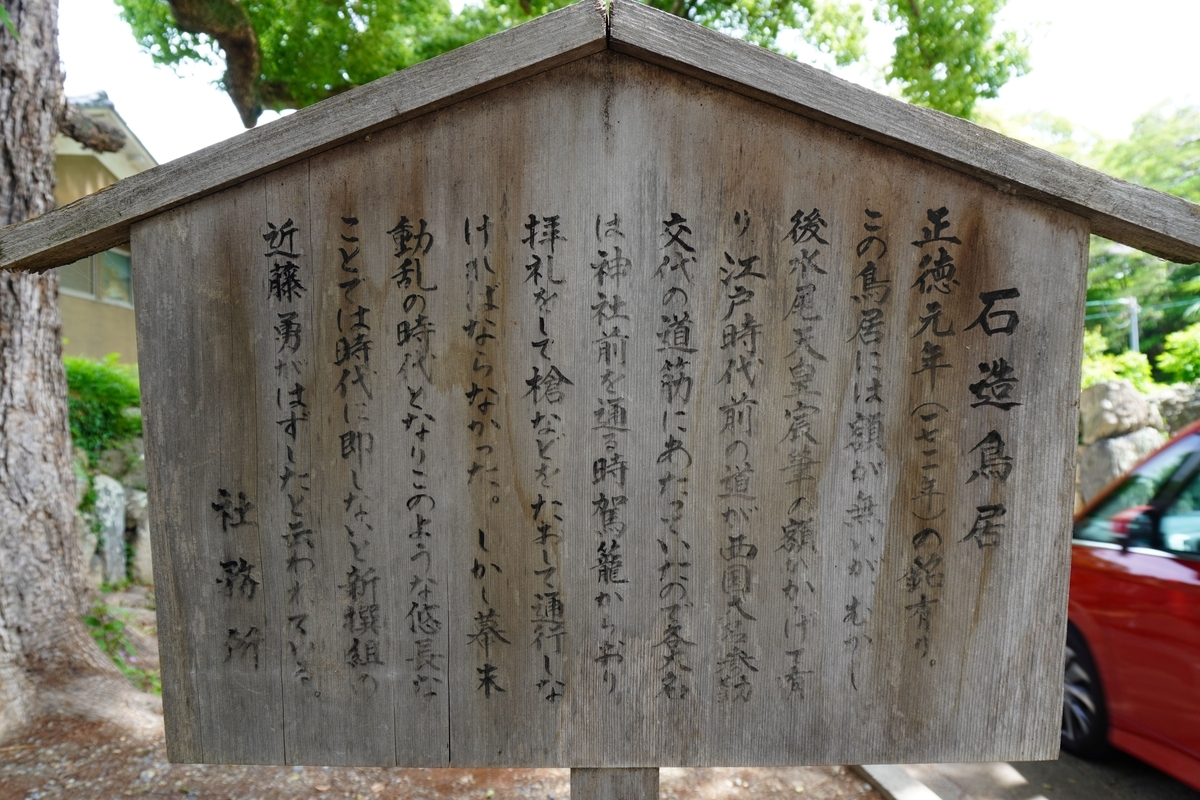 石造鳥居
正徳元年(一七一一年)の銘有り。
この鳥居には額が無いがむかし
後水尾天皇宸筆の額がかげて有
り江戸時代前の道が西国大名参勤
交代の道筋にあたっていたので各大名
は神社前を通る時駕籠からおり
拝礼をして槍などをたおして通行しな
ければならなかった。しかし幕末
動乱の時代となりこのような悠長な
ことでは時代に即しないと新撰組の
近藤勇がはずしたと云われている。
社務所